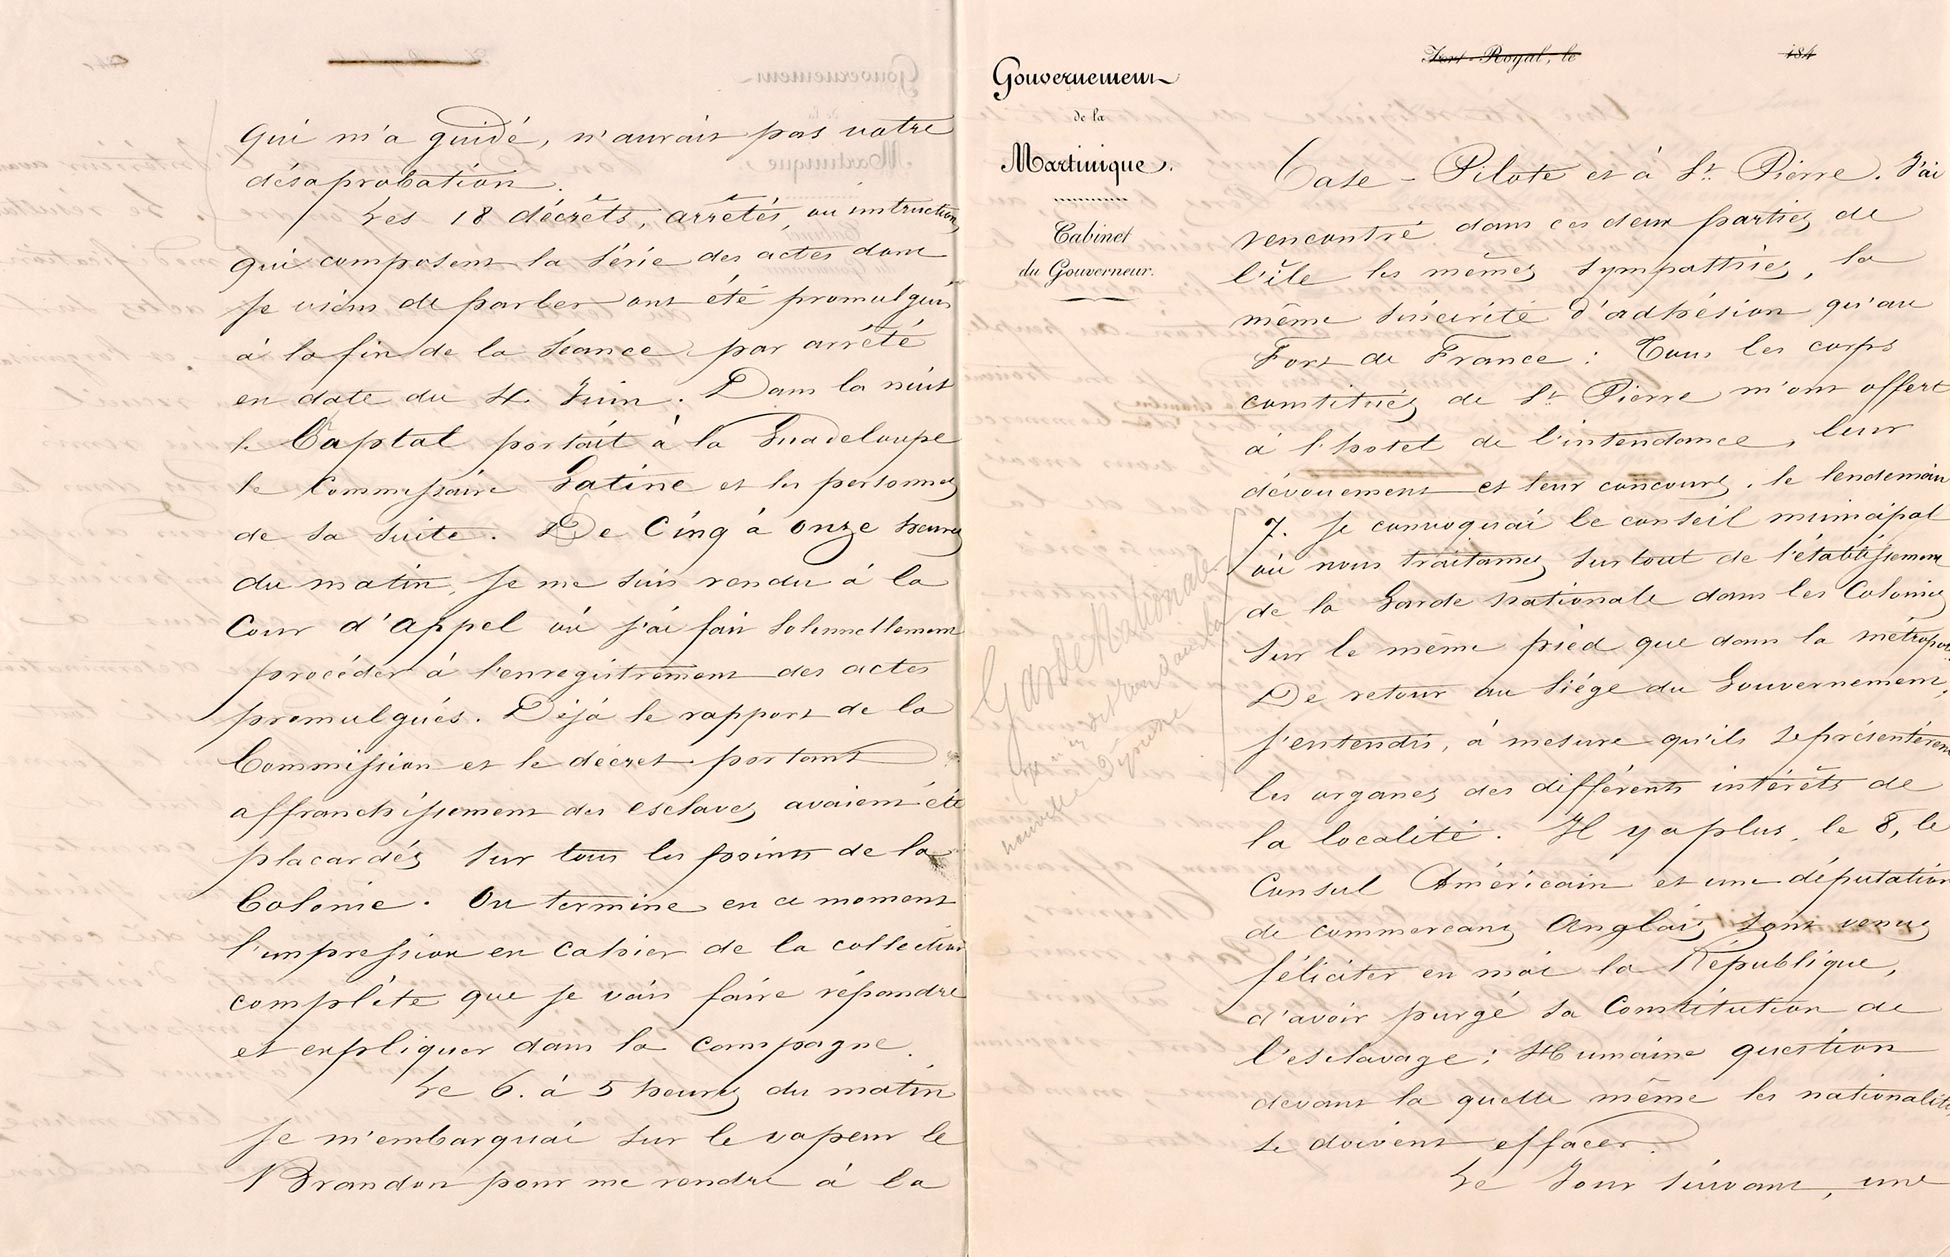 qui m'a guidé, n'aurait pas votre
désaprobation.
Les 18 décrets, arrêtés, ou instructions
qui composent la série des actes dont
je viens de parler ont été promulgués
à la fin de la séance par arrêté
en date du 4 Juin. Dans la nuit
le Captal portait à la Guadeloupe
le Commissaire Gatine et les personnes
de sa suite. De Cinq à onze heures
du matin, je me suis rendu à la
Cour d'appel où j'ai fait solennellement
procéder à l'enregistrement des actes
promulgués. Déjà le rapport de la
Commission et le décret portant
affranchissement des esclaves avaient été
placardés sur tous les points de la
Colonie. On termine en ce moment
l'impression en cahier de la collection
complète que je vais faire répandre
et expliquer dans la campagne.
Le 6. à 5 heures du matin
je m'embarquai sur le vapeur le
Brandon pour me rendre à la
Fort-Royal, le 184
Gouvernement
de la
Martinique.
Cabinet
du Gouverneur.
Case-Pilote et à St. Pierre. J'ai
rencontré dans ces deux parties de
l'île les mêmes sympathies, la
même sincérité d'adhésion qu'au
Fort de France : Tous les corps
constitués de St. Pierre m'ont offert
à l'hotel de l'intendance, leur
dévouement et leur concours. le lendemain
7. je convoquai le conseil municipal
où nous traitames surtout de l'établissement
de la Garde nationale dans les Colonies
sur le même pied que dans la métropole.
De retour au siége du Gouvernement,
j'entendis, à mesure qu'ils se présentèrent
les organes des différents intérêts de
la localité. Il y a plus, le 8, le
Consul Américain et une députation
de commercans Anglais sont venus
féliciter en moi la République,
d'avoir purgé sa Constitution de
l'esclavage ; Humaine question
devant la quelle même les nationalités
se doivent effacer.
Le Jour suivant, une
Garde Nationale